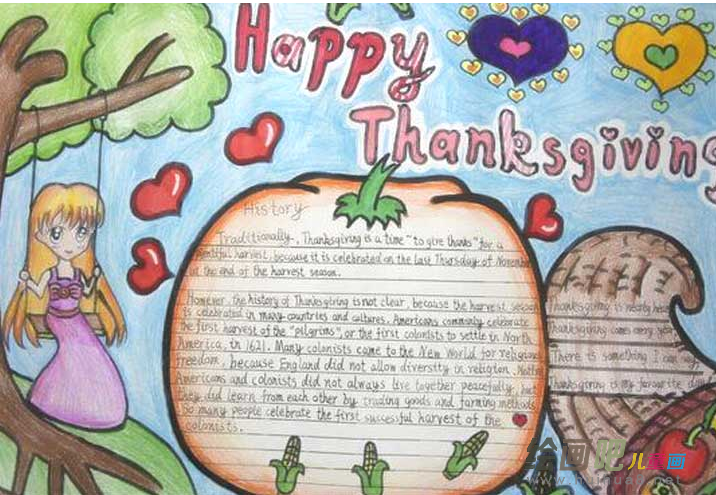 Happy
Thanksgiving
History
Traditionally, Thanksgiving is a time "to give thanks" for a
bountiful harvest, because it is celebrated on the last Thursday of November
at the end of the harvest season.
However, the history of Thanksgiving is not clear, because the harvest season
is celebrated in many countries and cultures. Americans commonly celebrate
the first harvest of the "pilgrims", or the first colonists to settle in North
America, in 1621. Many colonists came to the New World for religious
freedom, because England did not allow diversity in religion. Native
Americans and colonists did not always live together peacefully, but
they did learn from each other by trading goods and farming methods.
So many people celebrate the first successful harvest of the
colonists.
Thanksgiving is nearly here
Thanksgiving comes every year
There is something I can
Thanksgiving is my favourite day
绘画吧儿童画